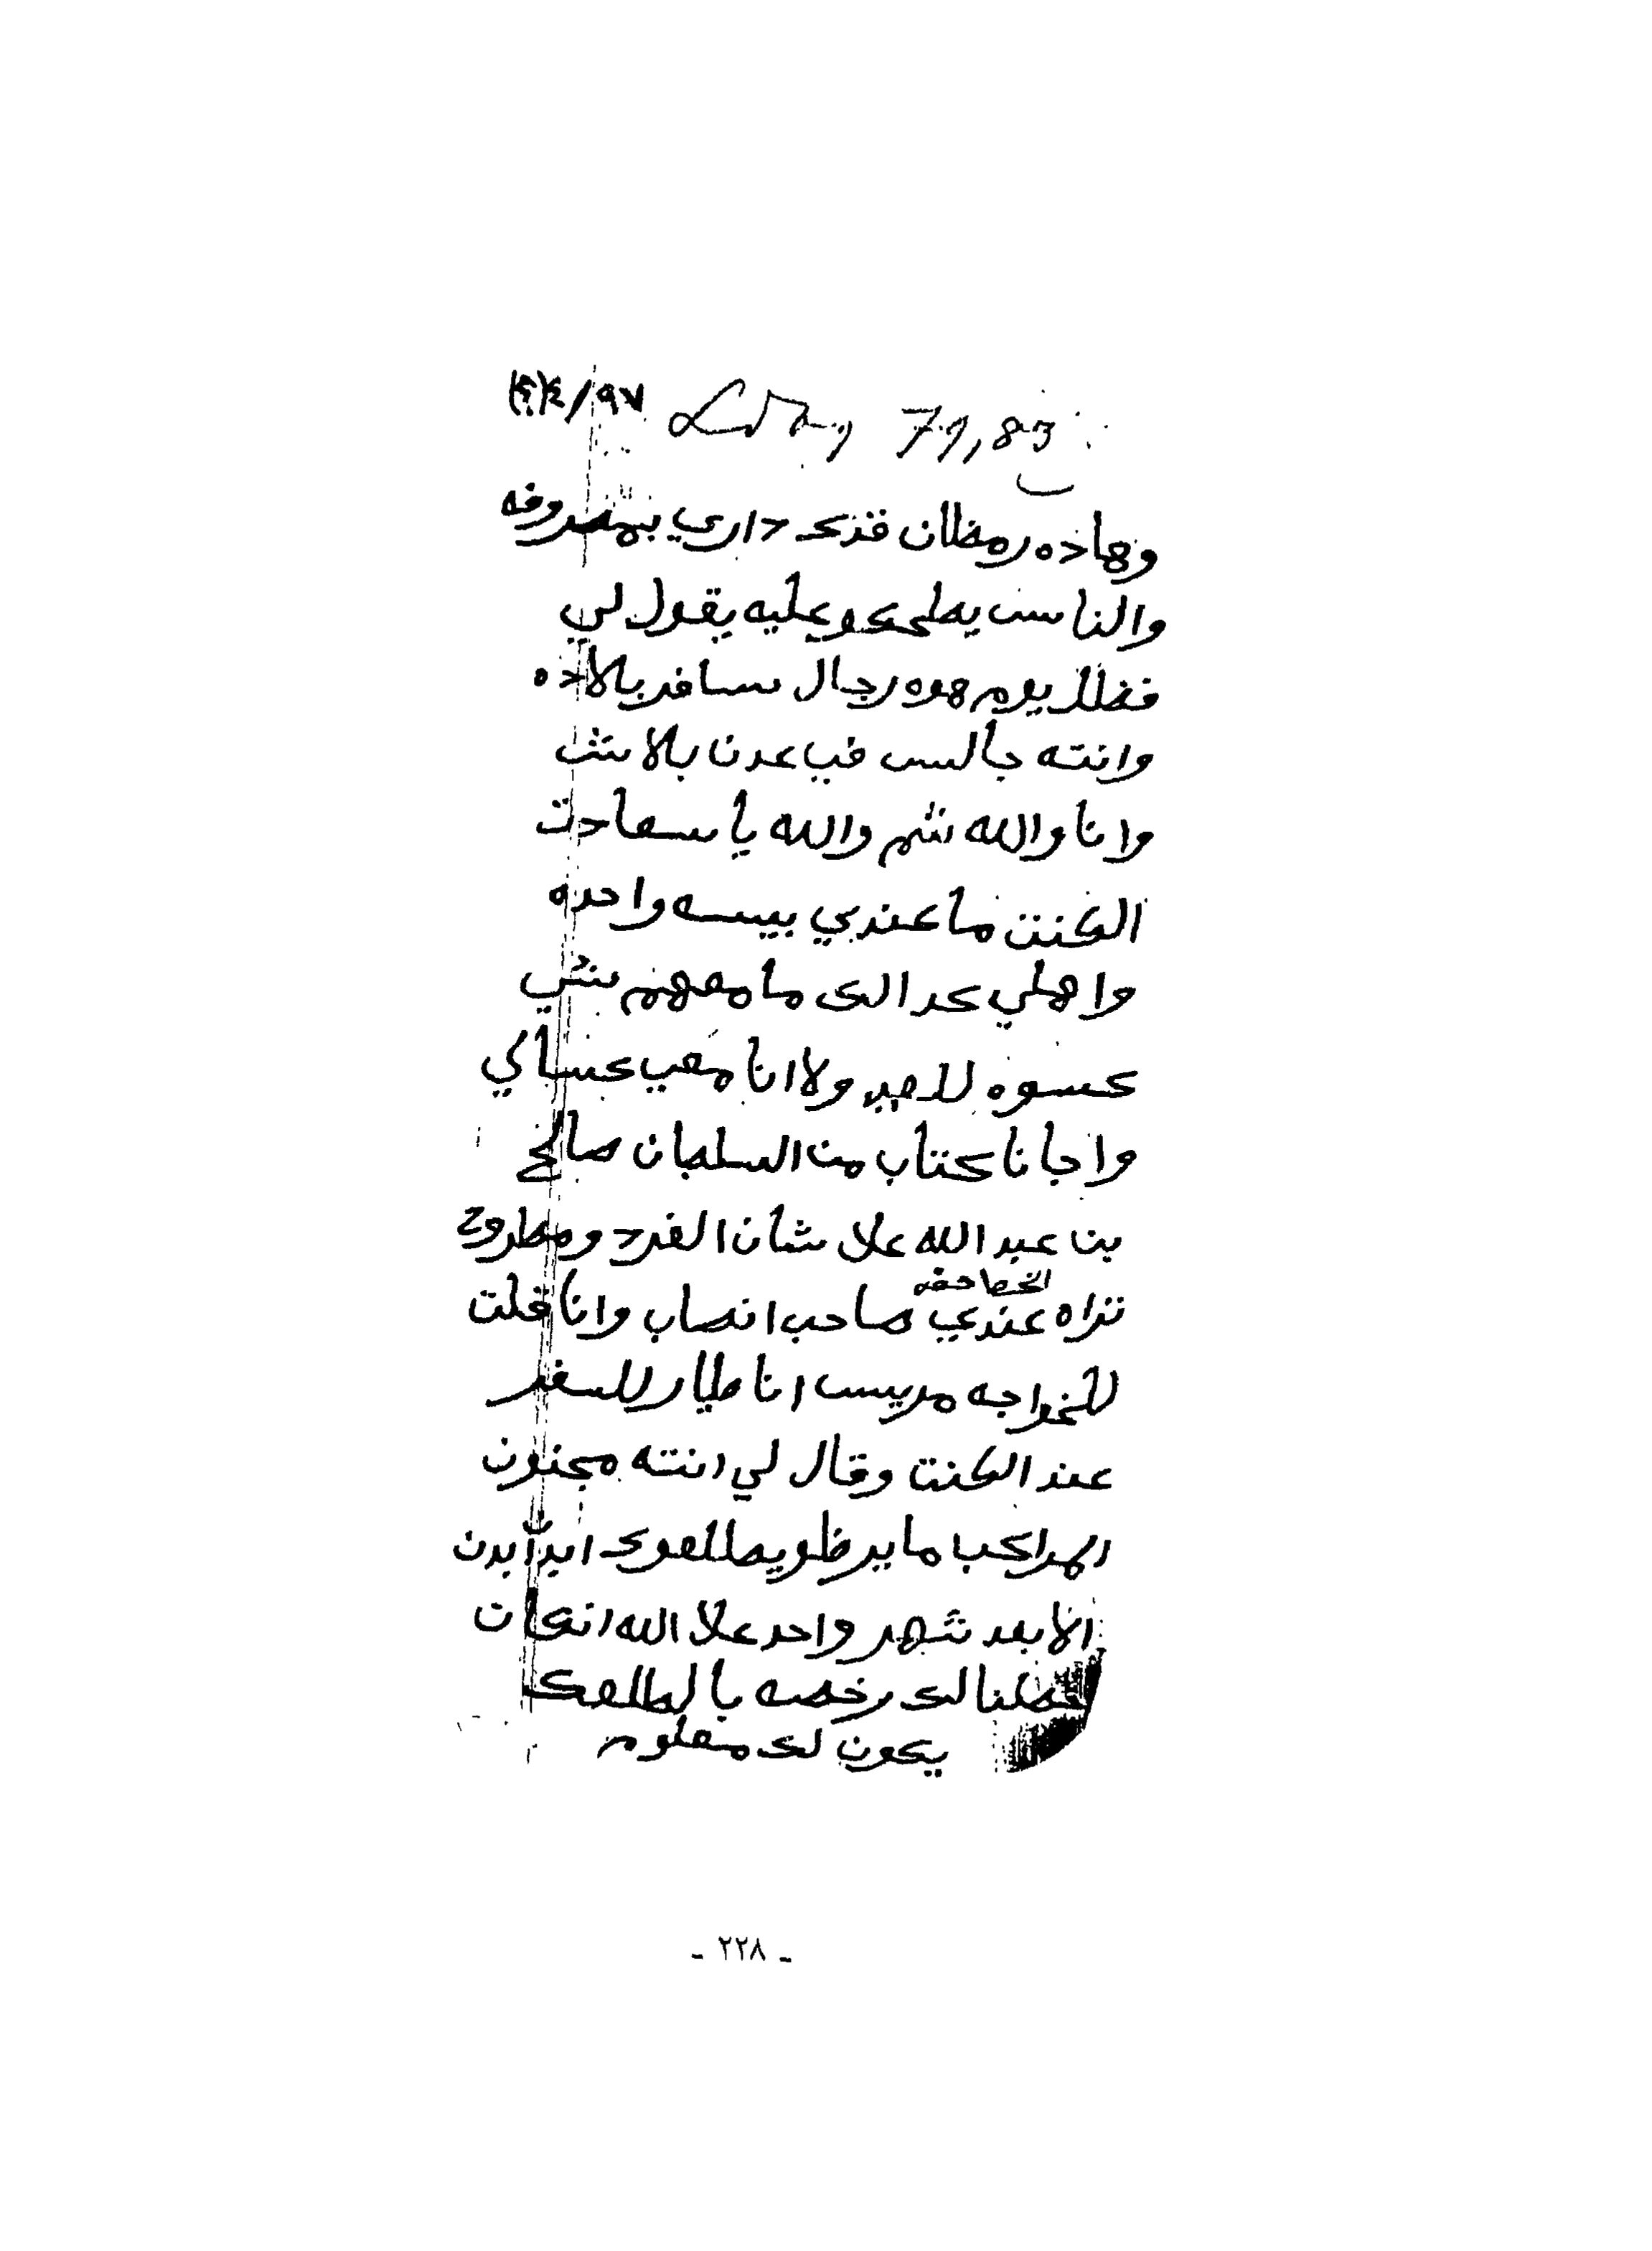 ٩٧/
79, 83
وهاذه رمظان قدك داري بمصروفه
والناس يظحكو عليه يقول لي
فظلل يوم هوه رجال سافر بالاده
وانته جالس في عدن بالاش
وانا والله ثم والله يا سعادت
الكنت ما عندي بيسه واحده
واهلي كدالك ما معهم شي
كسوه للعيد ولا انا معي كسالي
واجانا كتاب من السلطان صالح
بن عبدالله علا شان الفرد ومطروح
الخطا حقه
تراه عندي صاحب انصاب وانا قلت
للخواجه مريس انا طيار للسفر
عند الكنت وقال لي انته مجنون
المراكب ما يرظو يطلعوك ابد ابدن
الا بعد شهر واحد علا الله انكان
لك رخصه با لطلعك
يكون لك معلوم
- ٢٢٨ -